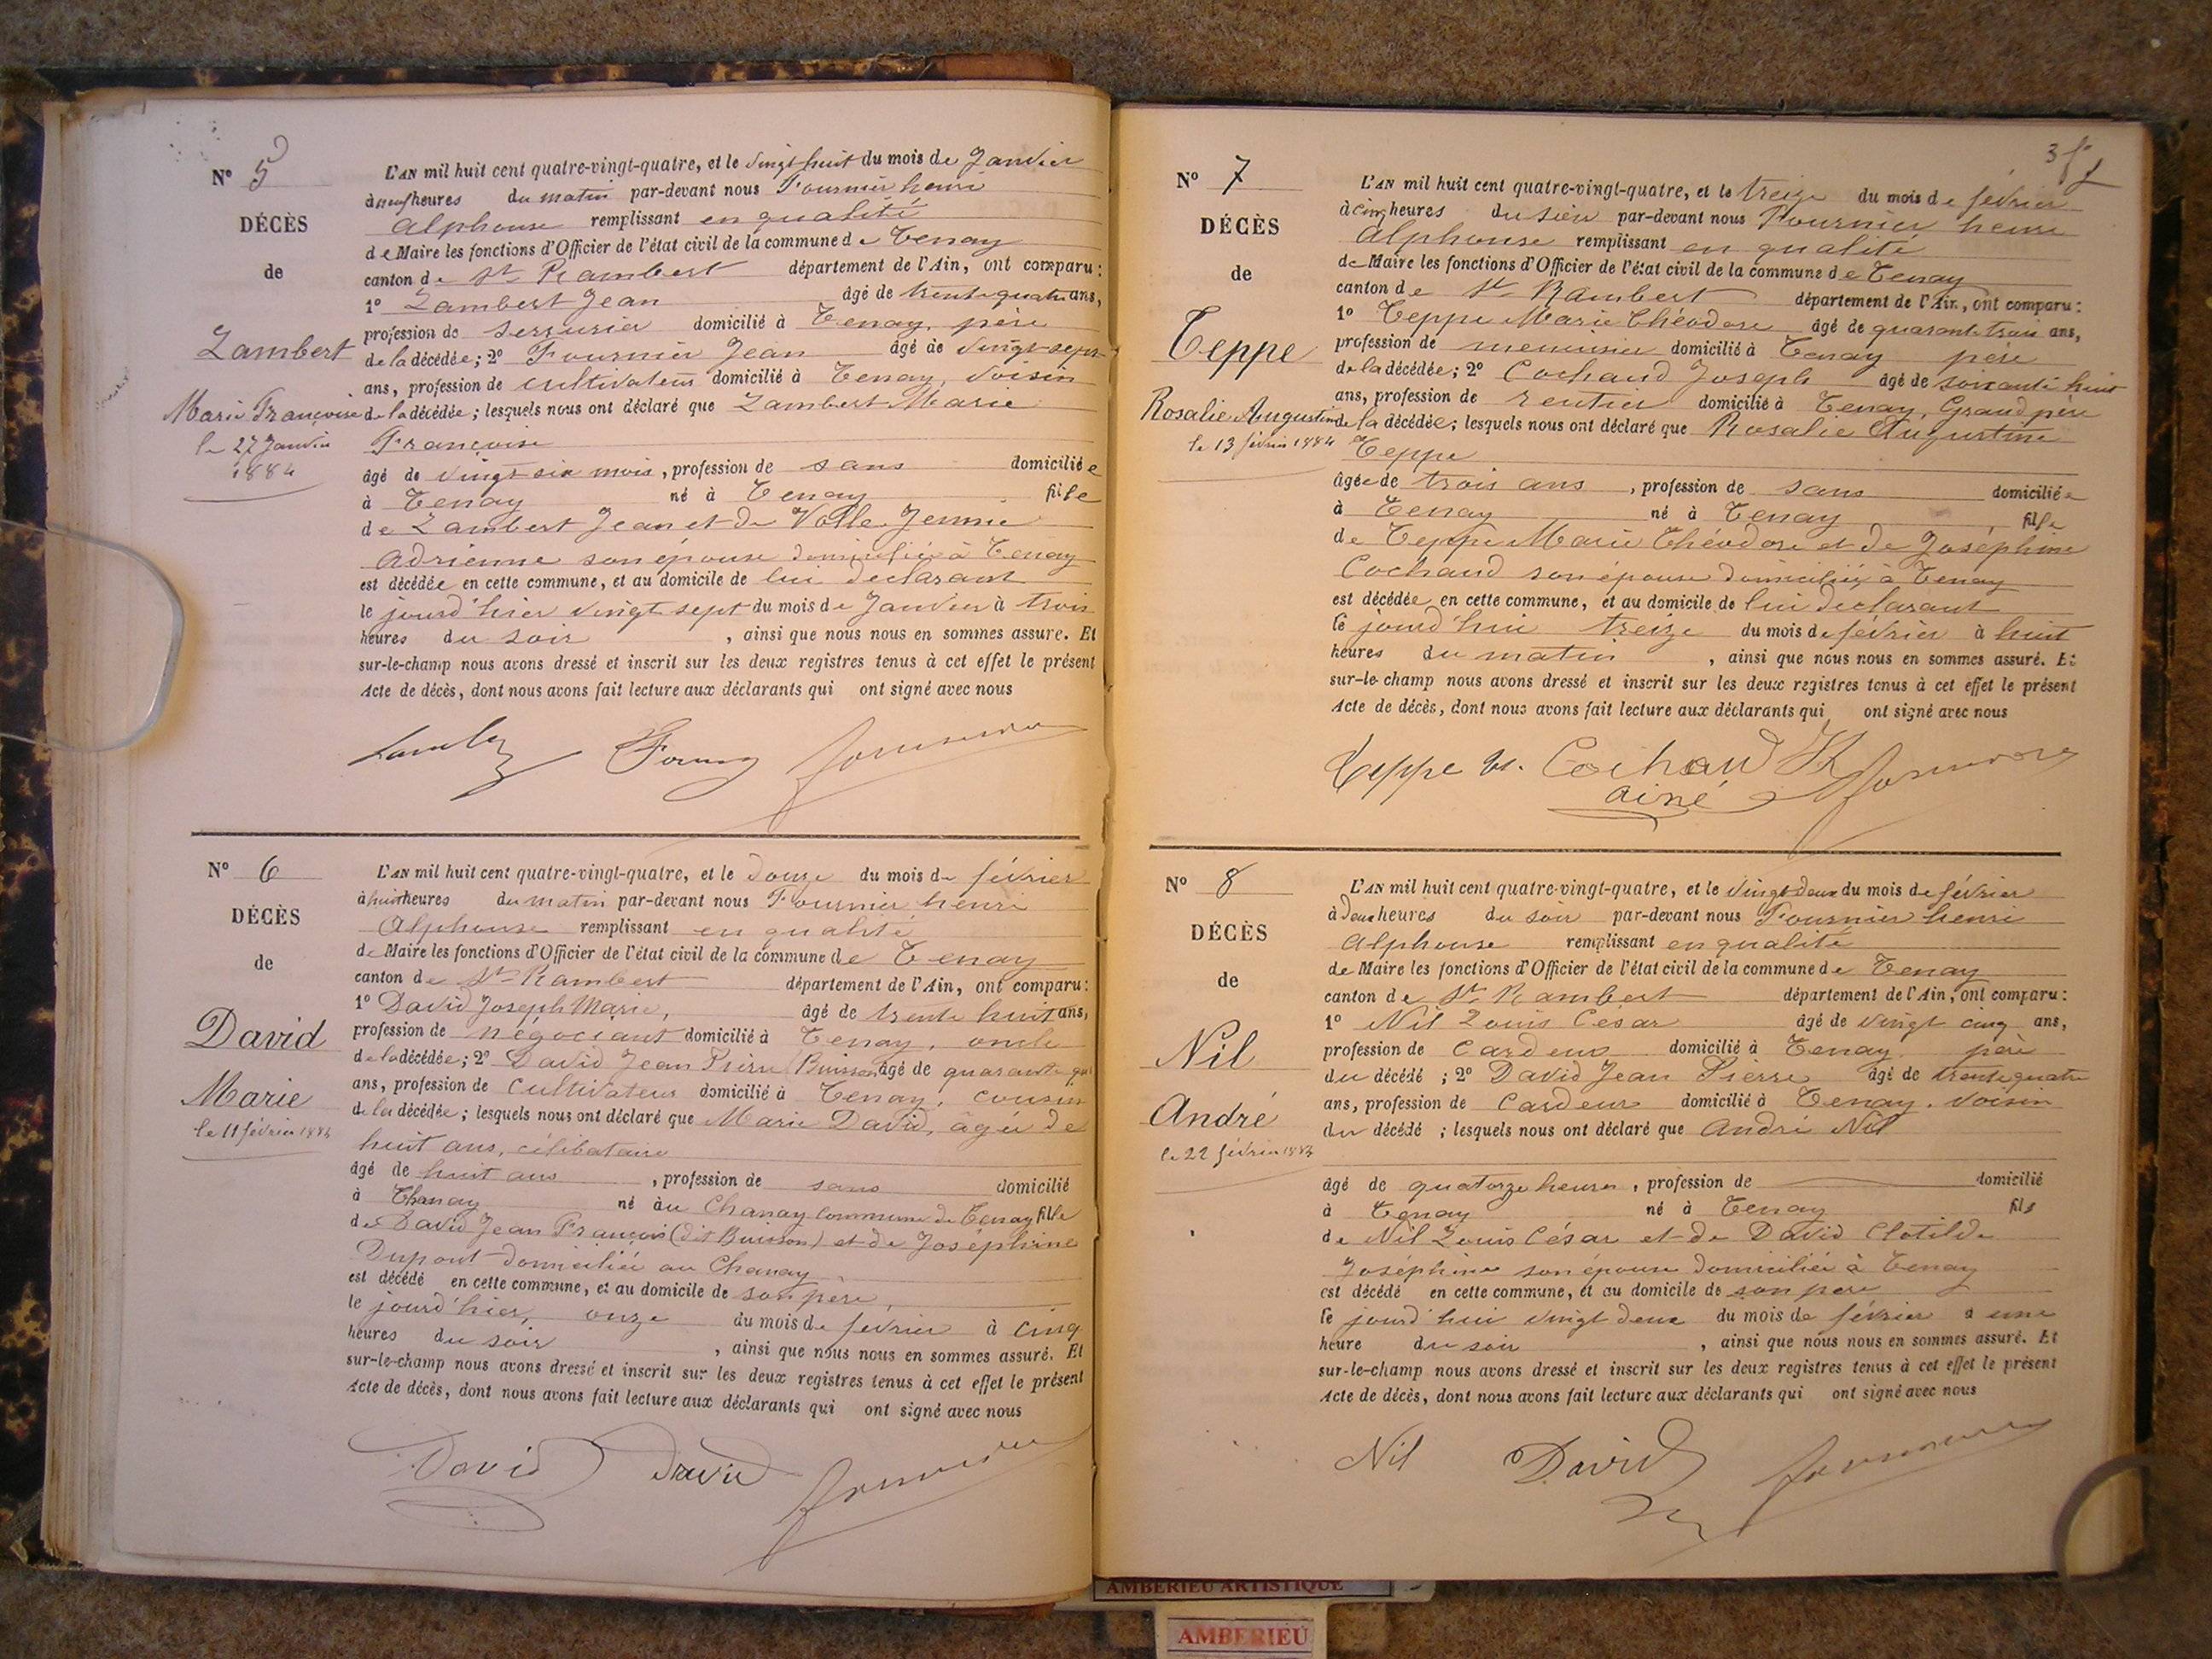 Nº 5
DÉCÈS
de
Lambert
Marie Françoise
le 27 Janvier
1884
L'AN mil huit cent quatre-vingt-quatre, et le vingt huit du mois de Janvier
à neuf heures du matin par-devant nous Fournier henri
Alphonse remplissant en qualité
de Maire les fonctions d'Officier de l'état civil de la commune de Tenay
canton de St Rambert département de l'Ain, ont comparu :
1º Lambert Jean âgé de trente quatre ans,
profession de serrurier domicilié à Tenay, père
de la décédée ; 2º Fournier Jean âgé de vingt-sept
ans, profession de cultivateur domicilié à Tenay, voisin
de la décédée ; lesquels nous ont déclaré que Lambert Marie
Françoise
âgé de vingt six mois, profession de sans domiciliée
à Tenay né à Tenay fille
de Lambert Jean et de Volle Jennie
Adrienne son épouse domiciliée à Tenay
est décédée en cette commune, et au domicile de lui déclarant
le jourd'hier vingt sept du mois de Janvier à trois
heures du soir , ainsi que nous nous en sommes assuré. Et
sur-le-champ nous avons dressé et inscrit sur les deux registres tenus à cet effet le présent
Acte de décès, dont nous avons fait lecture aux déclarants qui ont signé avec nous
Nº 6
DÉCÈS
de
David
Marie
le 11 février 1884
L'AN mil huit cent quatre-vingt-quatre, et le douze du mois de février
à huit heures du matin par-devant nous Fournier henri
Alphonse remplissant en qualité
de Maire les fonctions d'Officier de l'état civil de la commune de Tenay
canton de St Rambert département de l'Ain, ont comparu :
1º David Joseph Marie, âgé de trente huit ans,
profession de négociant domicilié à Tenay, oncle
de la décédée ; 2º David Jean Pierre (Buisson âgé de quarante
ans, profession de cultivateur domicilié à Tenay, cousin
de la décédée ; lesquels nous ont déclaré que Marie David, âgée de
huit ans, célibataire
âgé de huit ans , profession de sans domicilié
à Chanay né au Chanay commune de Tenay fille
de David Jean François (dit Buisson) et de Joséphine
Dupont domiciliée au Chanay
est décédé en cette commune, et au domicile de son père,
le jourd'hier, onze du mois de février à cinq
heures du soir , ainsi que nous nous en sommes assuré. Et
sur-le-champ nous avons dressé et inscrit sur les deux registres tenus à cet effet le présent
Acte de décès, dont nous avons fait lecture aux déclarants qui ont signé avec nous
David David
Nº 7
DÉCÈS
de
Teppe
Rosalie Augustine
le 13 février 1884
L'AN mil huit cent quatre-vingt-quatre, et le treize du mois de février
à cinq heures du soir par-devant nous Fournier henri
Alphonse remplissant en qualité
de Maire les fonctions d'Officier de l'état civil de la commune de Tenay
canton de St Rambert département de l'Ain, ont comparu :
1º Teppe Marie Théodore âgé de quarante trois ans,
profession de menuisier domicilié à Tenay père
de la décédée ; 2º Cochaud Joseph âgé de soixante huit
ans, profession de rentier domicilié à Tenay, Grand père
de la décédée ; lesquels nous ont déclaré que Rosalie Augustine
Teppe
âgée de trois ans , profession de sans domiciliée
à Tenay né à Tenay fille
de Teppe Marie Théodore et de Joséphine
Cochaud son épouse domiciliée à Tenay
est décédée en cette commune, et au domicile de lui déclarant
le jourd'hui treize du mois de février à huit
heures du matin , ainsi que nous nous en sommes assuré. Et
sur-le-champ nous avons dressé et inscrit sur les deux registres tenus à cet effet le présent
Acte de décès, dont nous avons fait lecture aux déclarants qui ont signé avec nous
Teppe M. Cochaud
ainé
Nº 8
DÉCÈS
de
Nil
André
le 22 février 1884
L'AN mil huit cent quatre-vingt-quatre, et le vingt deux du mois de février
à deux heures du soir par-devant nous Fournier henri
Alphonse remplissant en qualité
de Maire les fonctions d'Officier de l'état civil de la commune de Tenay
canton de St Rambert département de l'Ain, ont comparu :
1º Nil Louis César âgé de vingt cinq ans,
profession de Cardeur domicilié à Tenay père
du décédé ; 2º David Jean Pierre âgé de trente quatre
ans, profession de Cardeur domicilié à Tenay, voisin
du décédé ; lesquels nous ont déclaré que André Nil
âgé de quatorze heures, profession de domicilié
à Tenay né à Tenay fils
de Nil Louis César et de David Clotilde
Joséphine son épouse domiciliée à Tenay
est décédé en cette commune, et au domicile de son père
le jourd'hui vingt deux du mois de février à une
heure du soir , ainsi que nous nous en sommes assuré. Et
sur-le-champ nous avons dressé et inscrit sur les deux registres tenus à cet effet le présent
Acte de décès, dont nous avons fait lecture aux déclarants qui ont signé avec nous
Nil David
AMBERIEU ARTISTIQUE
AMBERIEU